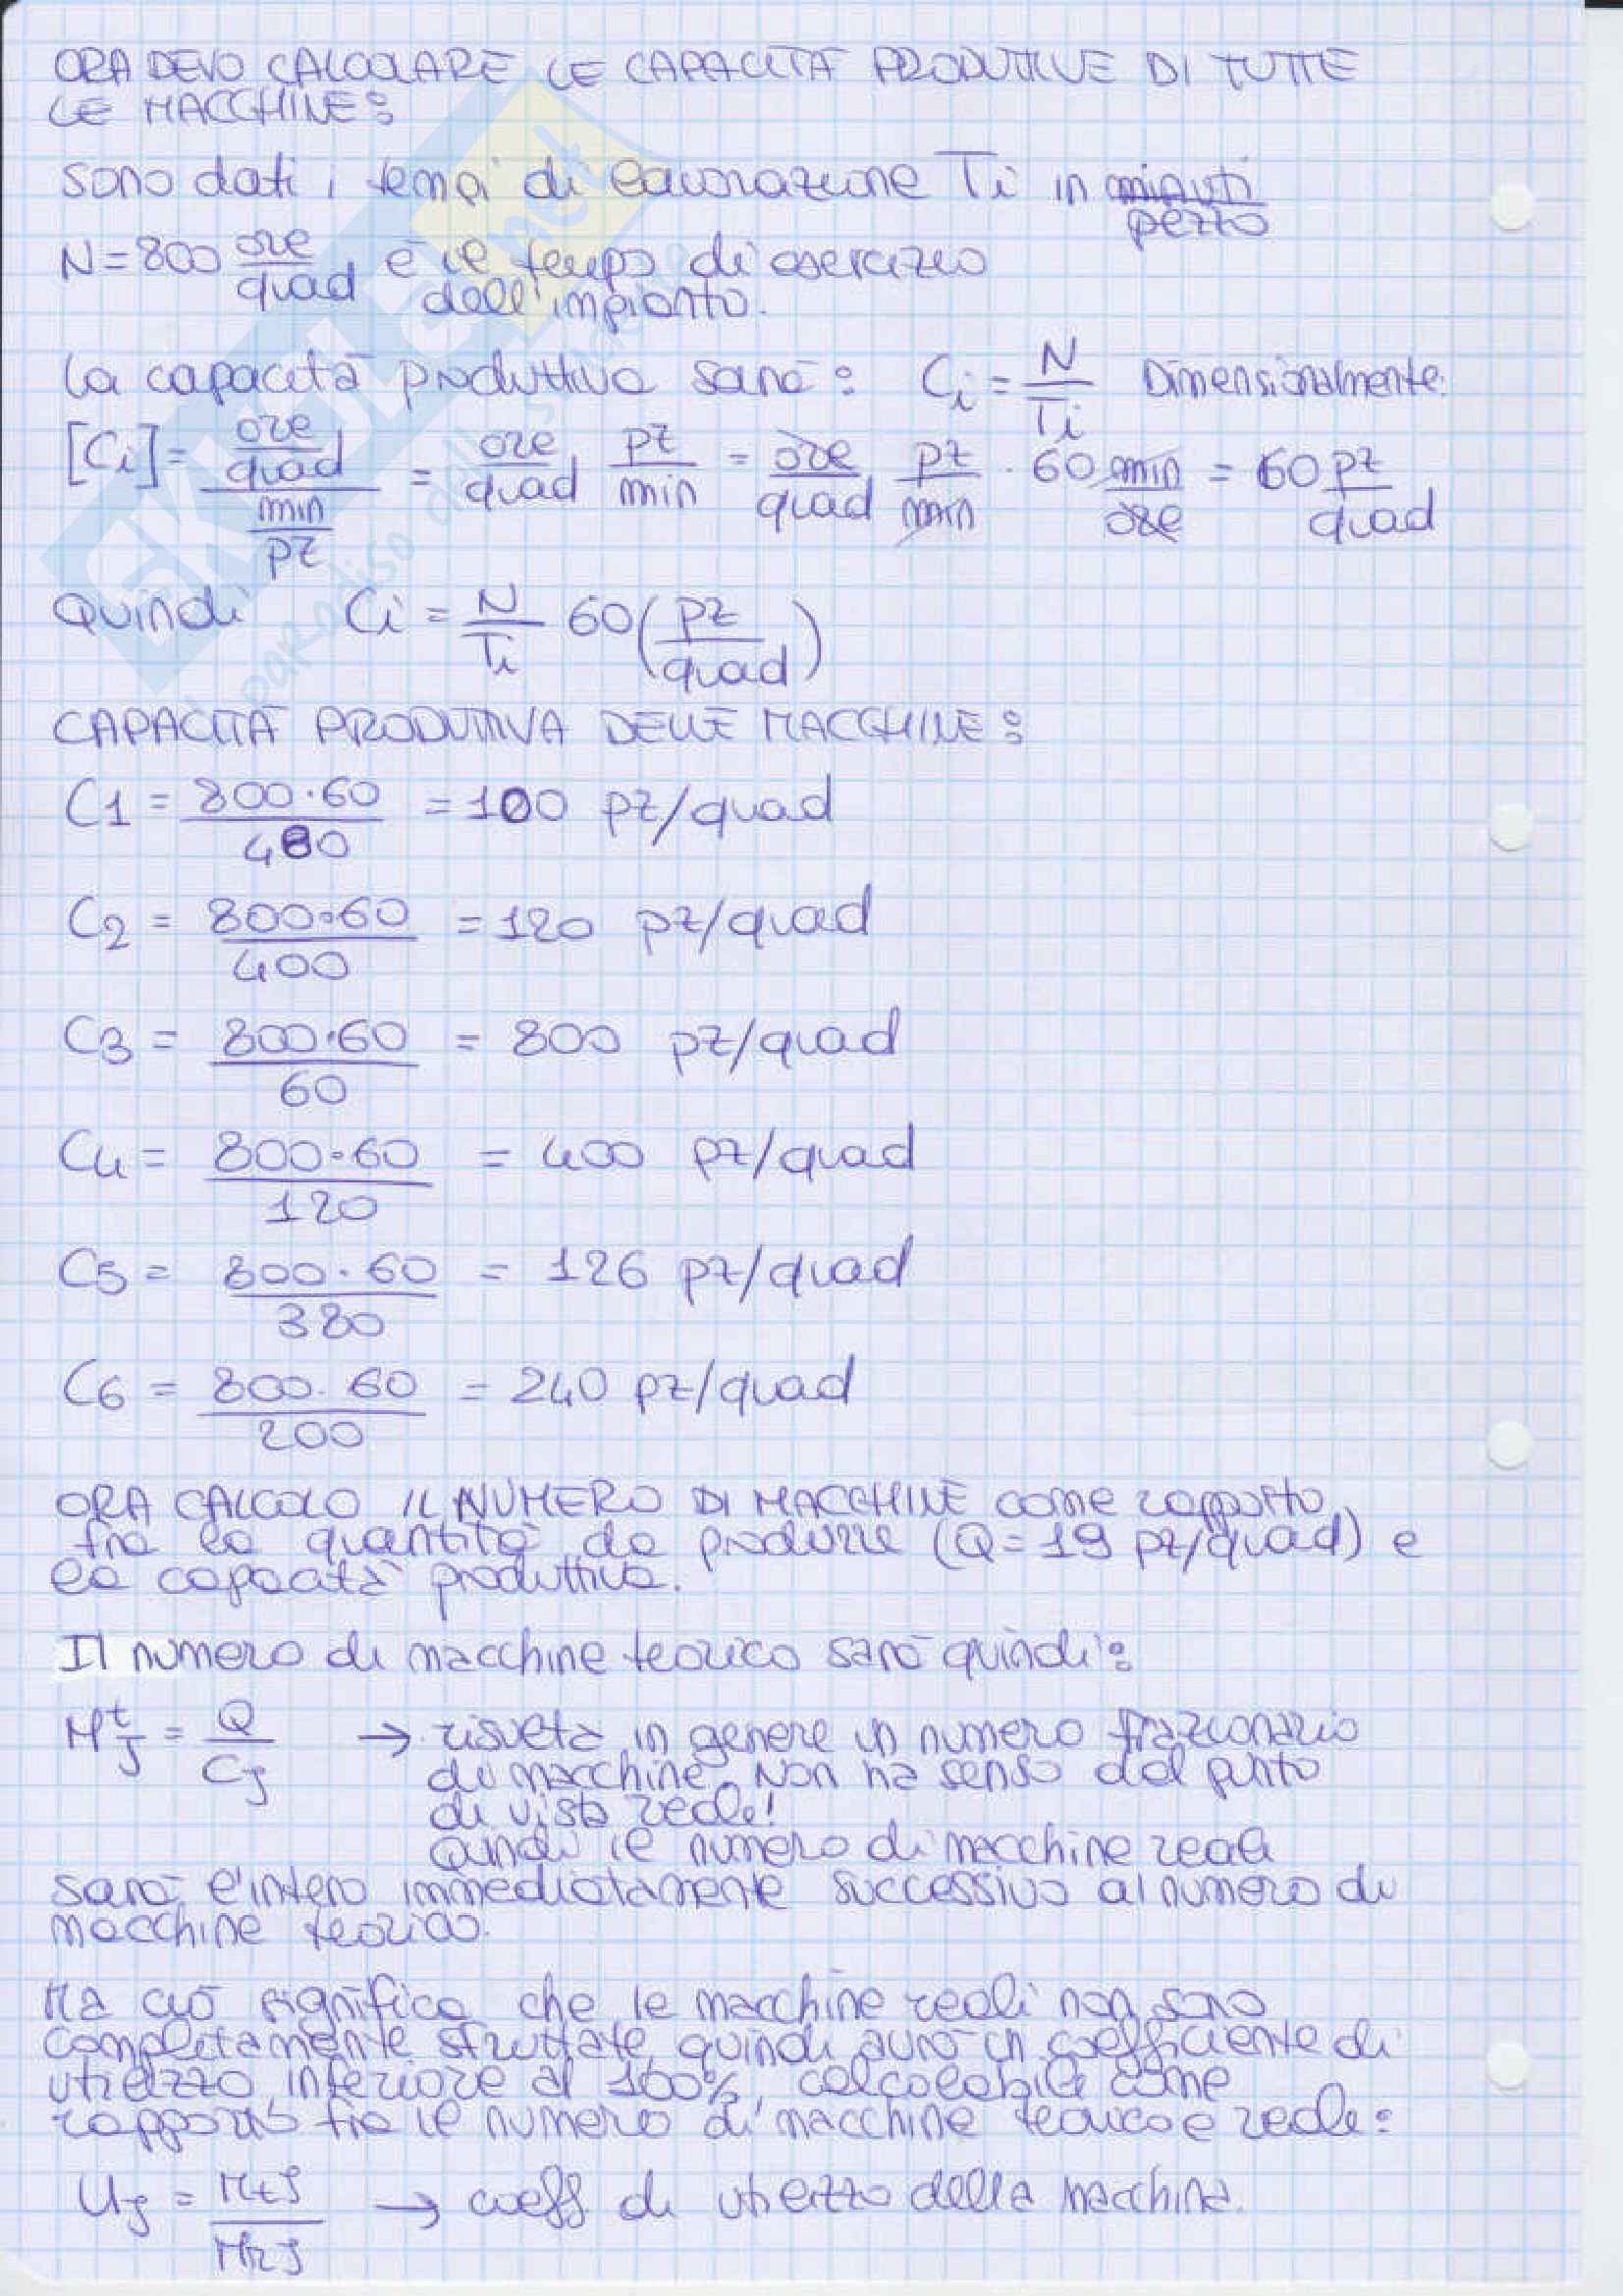 ORA DEVO CALCOLARE LE CAPACITÀ PRODUTTIVE DI TUTTE
LE MACCHINE:
sono dati i tempi di lavorazione Ti in minuti/pezzo
N = 800 ore/quad è il tempo di esercizio
dell'impianto.
la capacità produttiva sarà: Ci = N/Ti Dimensionalmente:
[Ci] = (ore/quad)/(min/pz) = ore/quad pz/min = ore/quad pz/min · 60 min/ore = 60 pz/quad
Quindi Ci = N/Ti 60 (pz/quad)
CAPACITÀ PRODUTTIVA DELLE MACCHINE:
C1 = 800·60/480 = 100 pz/quad
C2 = 800·60/400 = 120 pz/quad
C3 = 800·60/60 = 800 pz/quad
C4 = 800·60/120 = 400 pz/quad
C5 = 800·60/380 = 126 pz/quad
C6 = 800·60/200 = 240 pz/quad
ORA CALCOLO IL NUMERO DI MACCHINE come rapporto
fra la quantità da produrre (Q = 19 pz/quad) e
la capacità produttiva.
Il numero di macchine teorico sarà quindi:
M^t_J = Q/CJ → risulta in genere un numero frazionario
di macchine. Non ha senso dal punto
di vista reale!
Quindi il numero di macchine reali
sarà l'intero immediatamente successivo al numero di
macchine teorico.
Ma ciò significa che le macchine reali non sono
completamente sfruttate, quindi avrò un coefficiente di
utilizzo inferiore al 100%, calcolabile come
rapporto fra il numero di macchine teorico e reale:
UJ = MtJ/MrJ → coeff. di utilizzo della macchina.
SKUOLA.net
il paradiso dello studente